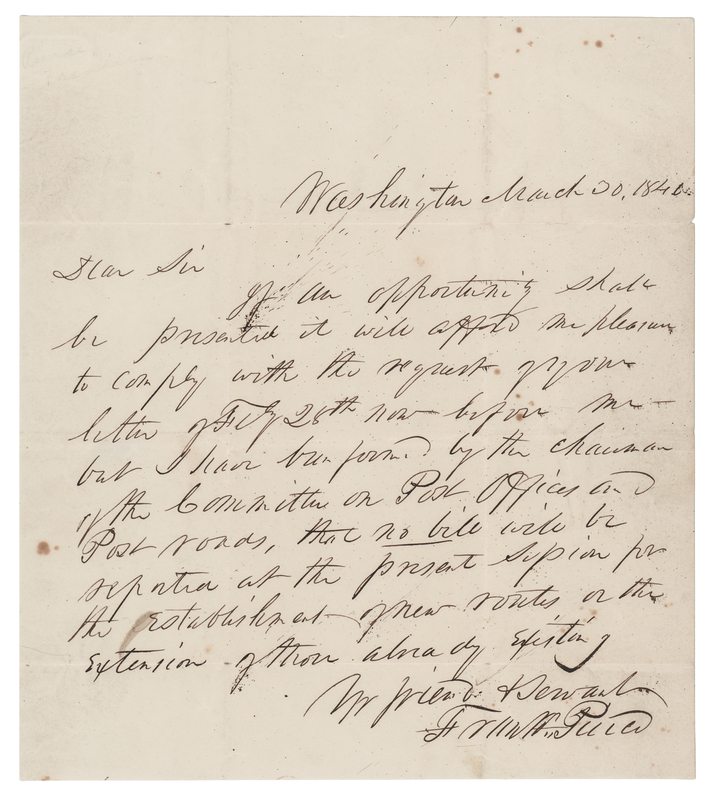 Washington March 30, 1840
Dear Sir
If an opportunity shall
be presented it will afford me pleasure
to comply with the request of your
letter of Feby 26th now before me
but I have been formed by the chairman
of the Committee on Post Offices and
Post roads, that no bill will be
reported at the present Session for
the establishment of new routes or the
extension of those already existing
Yr friend & Servant
Frank. Pierce